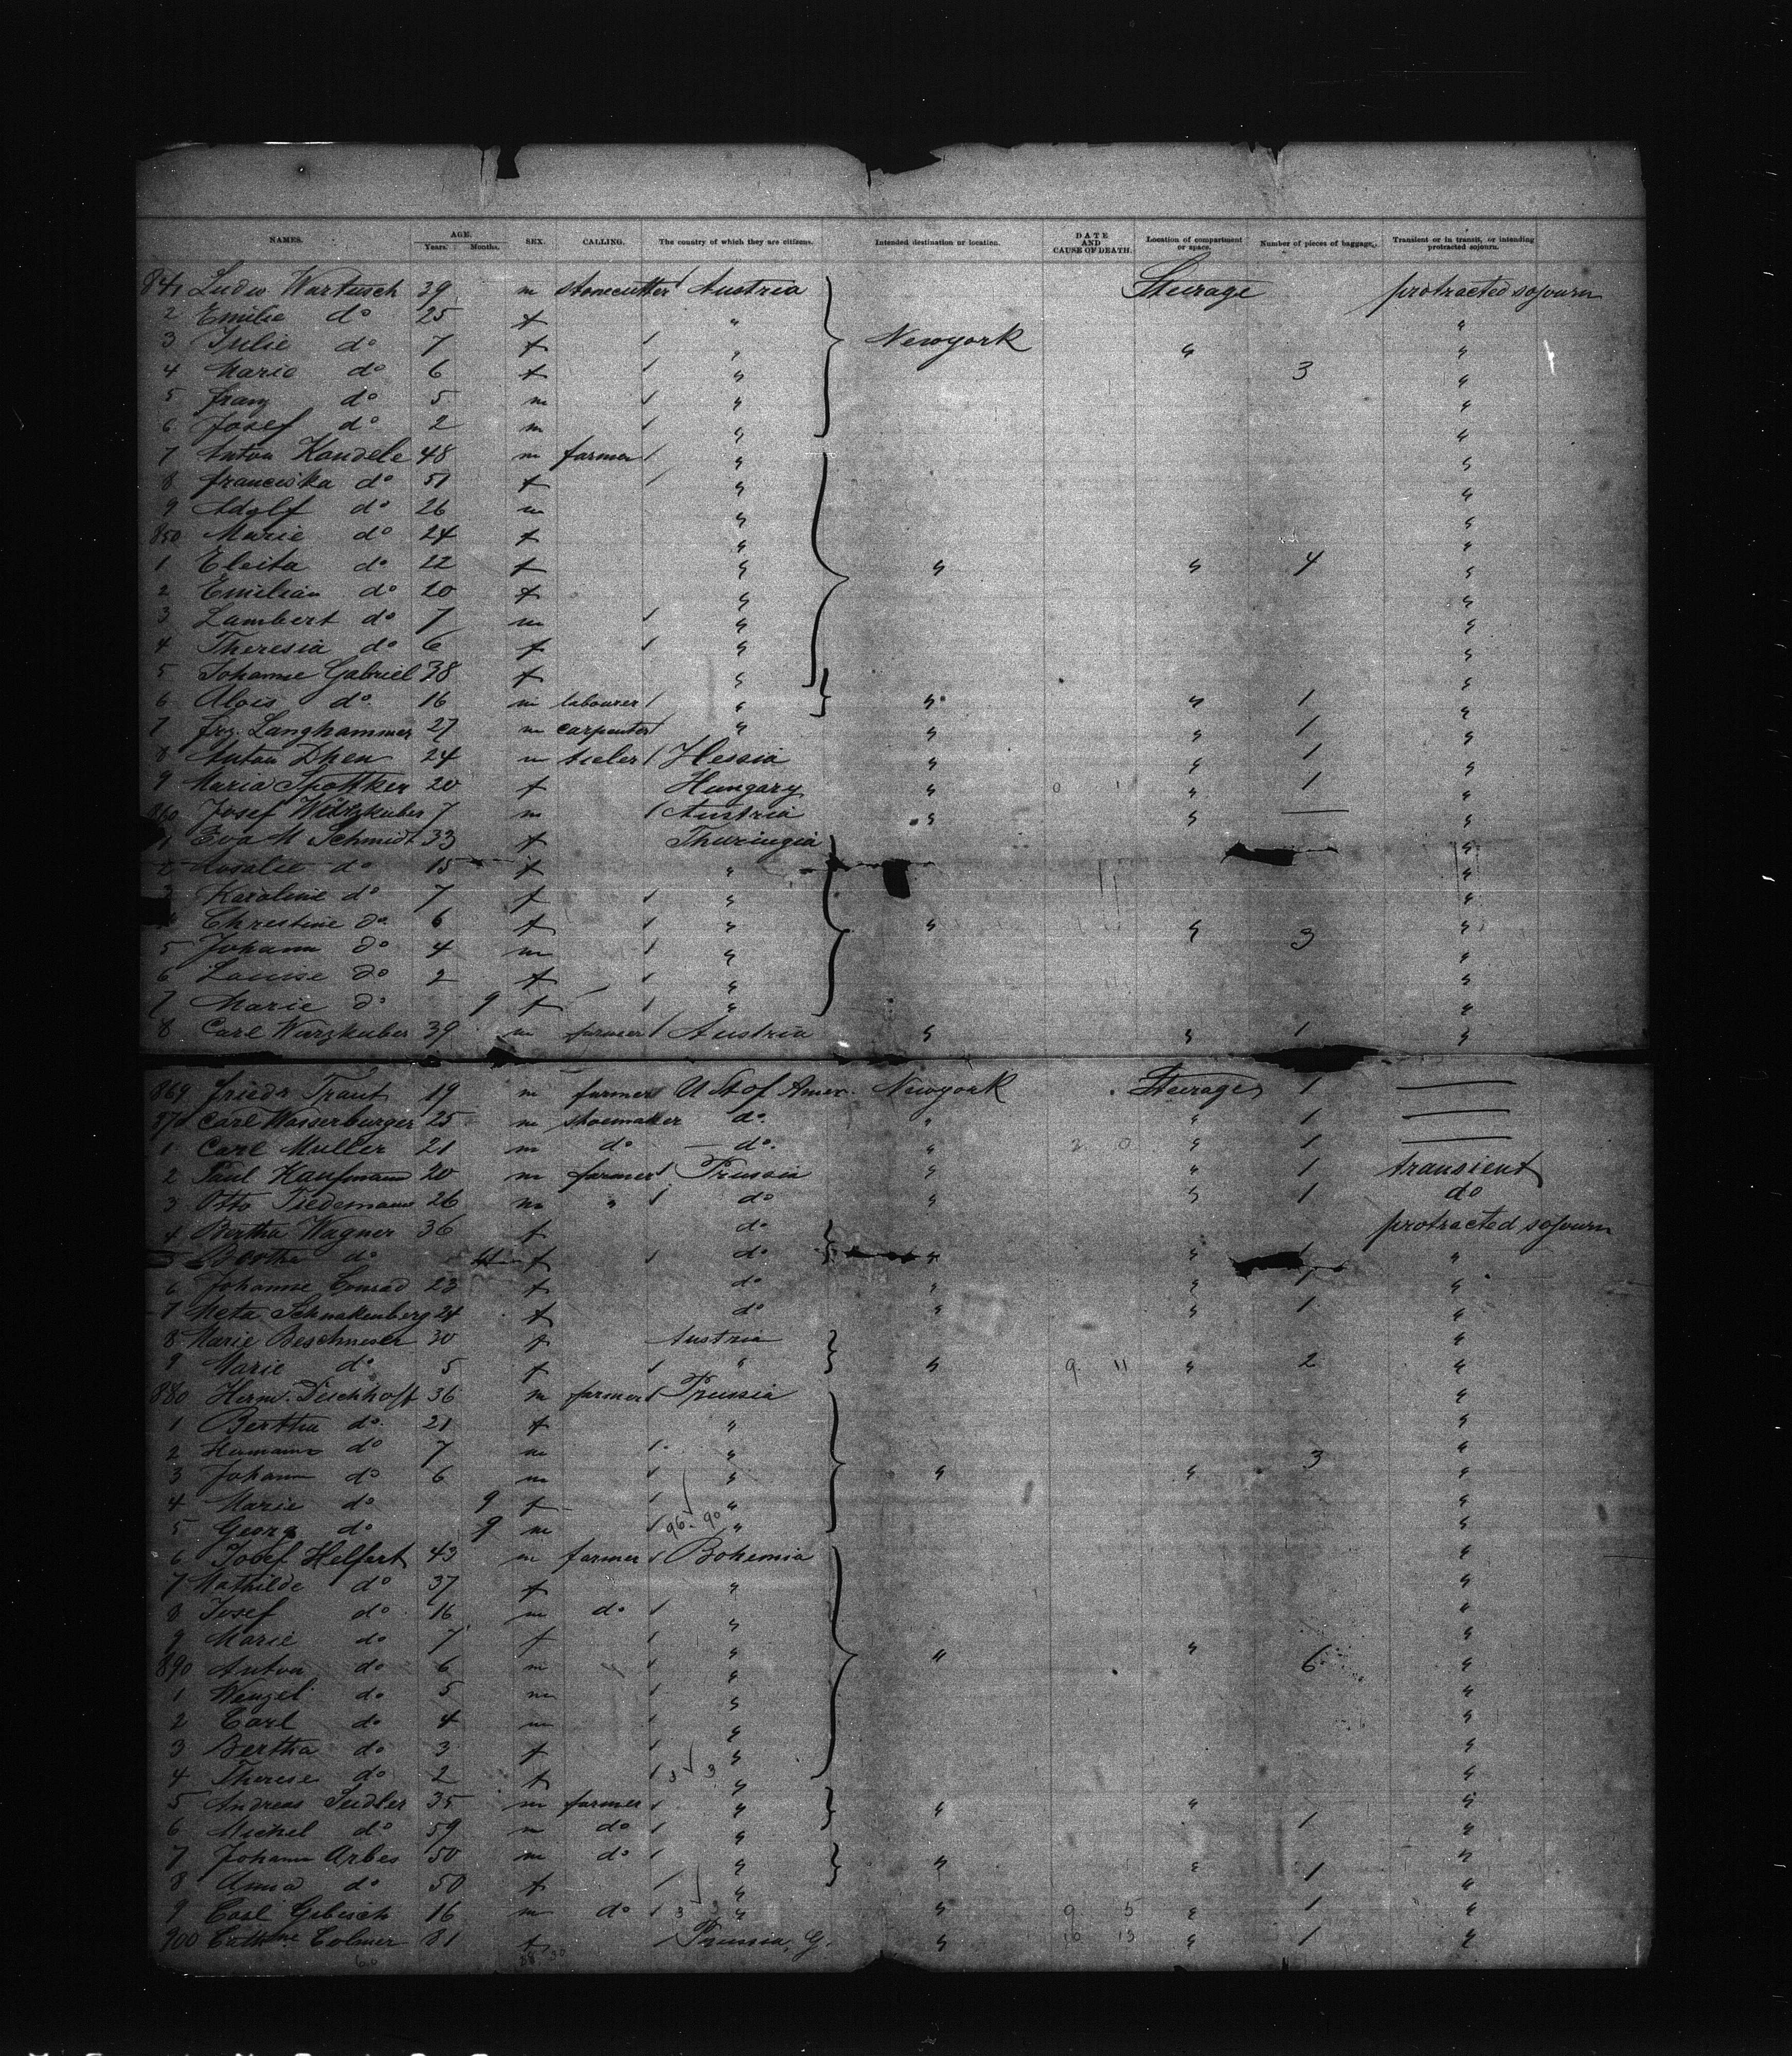 NAMES. AGE. Years. Months. SEX. CALLING. The country of which they are citizens. Intended destination or location. DATE AND CAUSE OF DEATH. Location of compartment or space. Number of pieces of baggage. Transient or in transit, or intending protracted sojourn.
841 Ludw Wartusch 39 m stonecutter Austria Steerage protracted sojourn
2 Emilie do 25 f " "
3 Julie do 7 f " Newyork " "
4 Marie do 6 f " 3 "
5 Franz do 5 m " "
6 Josef do 2 m " "
7 Anton Kandele 48 m farmer " "
8 Franciska do 51 f " "
9 Adolf do 26 m " "
850 Marie do 24 f " "
1 do 22 f " " " 4 "
2 Emilian do 20 f " "
3 Lambert do 7 m " "
4 Theresia do 6 f " "
5 Johanne Gabriel 38 f " "
6 Alois do 16 m labourer " " " 1 "
7 Frz. Langhammer 27 m carpenter " " " 1 "
8 Anton Dhen 24 m Hessia " " 1 "
9 Maria 20 f Hungary " " 1 "
860 Josef 7 m Austria " " — "
1 Eva M Schmidt 33 f Thuringia "
2 Rosalie do 15 f " "
3 Karoline do 7 f " "
4 Christine do 6 f " " " 3 "
5 Johann do 4 m " "
6 Louise do 2 f " "
7 Marie do 9 f " "
8 Carl Wurzkuber 39 m farmer Austria " " 1 "
869 Friedr Traut 19 m farmer U St of Amer. Newyork Steerage 1 —
870 Carl Wasserburger 25 m shoemaker do. " " 1 —
1 Carl Muller 21 m do do. " " 1 —
2 Paul Kaufmann 20 m farmer Prussia " " 1 transient
3 Otto Tiedemann 26 m " do " " 1 do
4 Bertha Wagner 36 f do protracted sojourn
5 do f do " " "
6 Johanne Conrad 23 f do " " 1 "
7 Meta Schnakenberg 24 f do " " 1 "
8 Marie 30 f Austria "
9 Marie do 5 f " " 9 11 " 2 "
880 Herm. Dischhoff 36 m farmer Prussia "
1 Bertha do. 21 f " "
2 Hermann do 7 m " 3 "
3 Johann do 6 m " " " "
4 Marie do 9 f " "
5 Georg do 9 m 96. 90 " "
6 Josef Helfert 43 m farmer Bohemia "
7 Mathilde do 37 f " "
8 Josef do 16 m do " "
9 Marie do 7 f " " "
890 Anton do 6 m " " 6 "
1 Wenzel do 5 m " "
2 Carl do 4 m " "
3 Bertha do 3 f " "
4 Therese do 2 f 3 3 " "
5 Andreas Seidler 35 m farmer " " " "
6 Michel do 59 m do " 1 "
7 Johann Arbes 50 m do " " " 1 "
8 Anna do 50 f " "
9 Carl Gebisch 16 m do 3 3 " " 9 5 " 1 "
900 Cathne Colmer 81 f Prussia, G. " 16 13 " 1 "